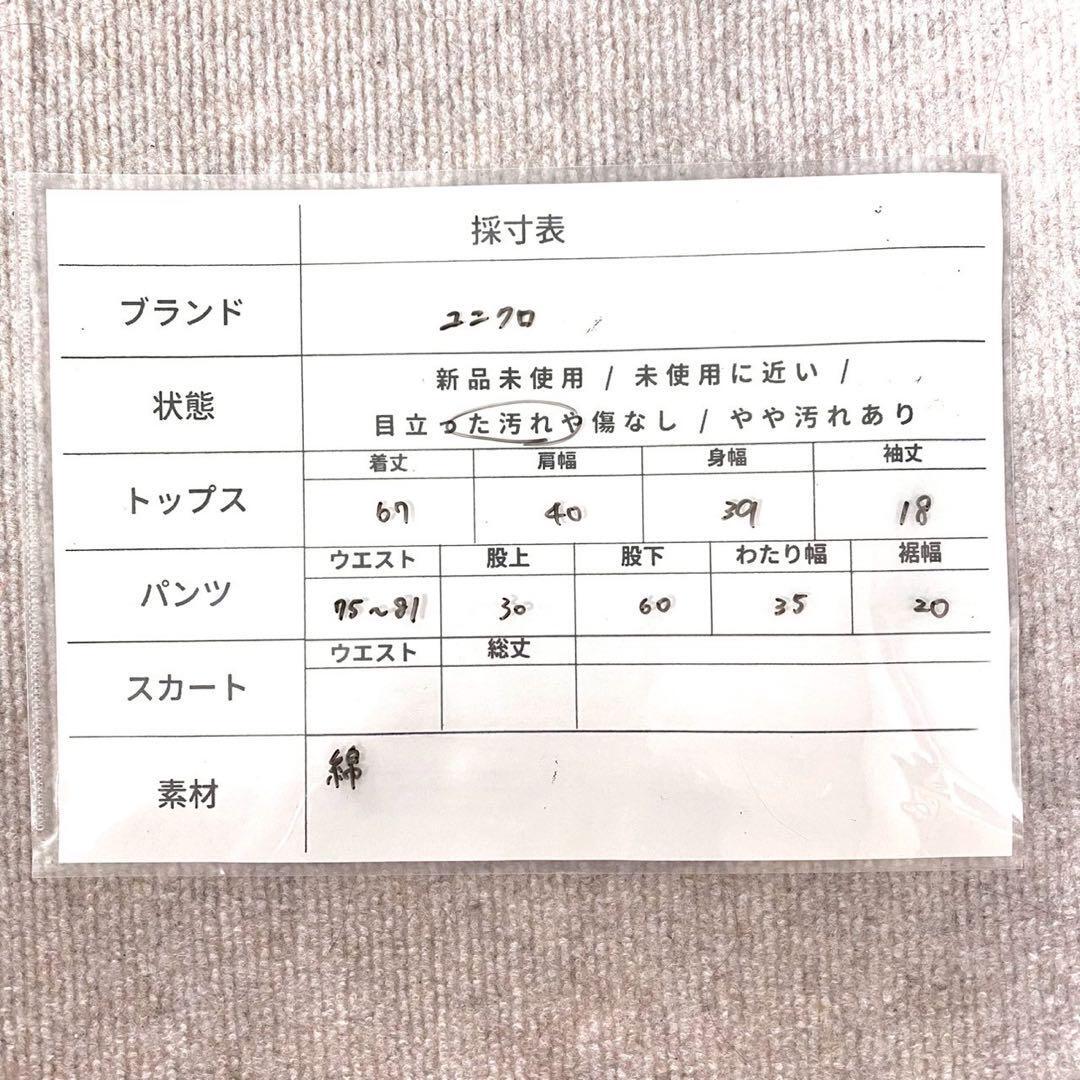 採寸表
ブランド ユニクロ
新品未使用 / 未使用に近い /
状態
目立った汚れや傷なし / やや汚れあり
着丈 肩幅 身幅 袖丈
トップス
67 40 39 18
ウエスト 股上 股下 わたり幅 裾幅
パンツ
75~81 30 60 35 20
ウエスト 総丈
スカート
綿
素材